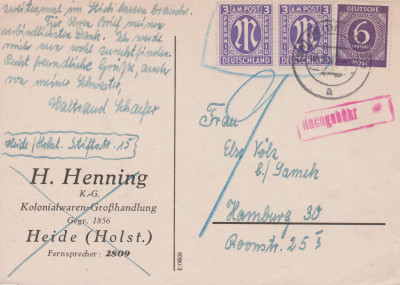 zweitenmal im Stich lassen brauche.
Für Ihren Brief meinen
verbindlichsten Dank. Ich werde
mich nun wohl zurechtfinden.
Recht freundliche Grüße, auch
von meiner Schwester,
Waltraud Schäfer
Heide/Holst. Stiftstr. 15
H. Henning
K.-G.
Kolonialwaren-Großhandlung
Gegr. 1856
Heide (Holst.)
Fernsprecher: 2809
E/0609
3 AM POST 3
M
DEUTSCHLAND
3 AM POST 3
M
DEUTSCHLAND
DEUTSCHE
6
POST
a
Nachgebühr
Frau
Else Völz
b./
Hamburg 30
Roonstr. 25